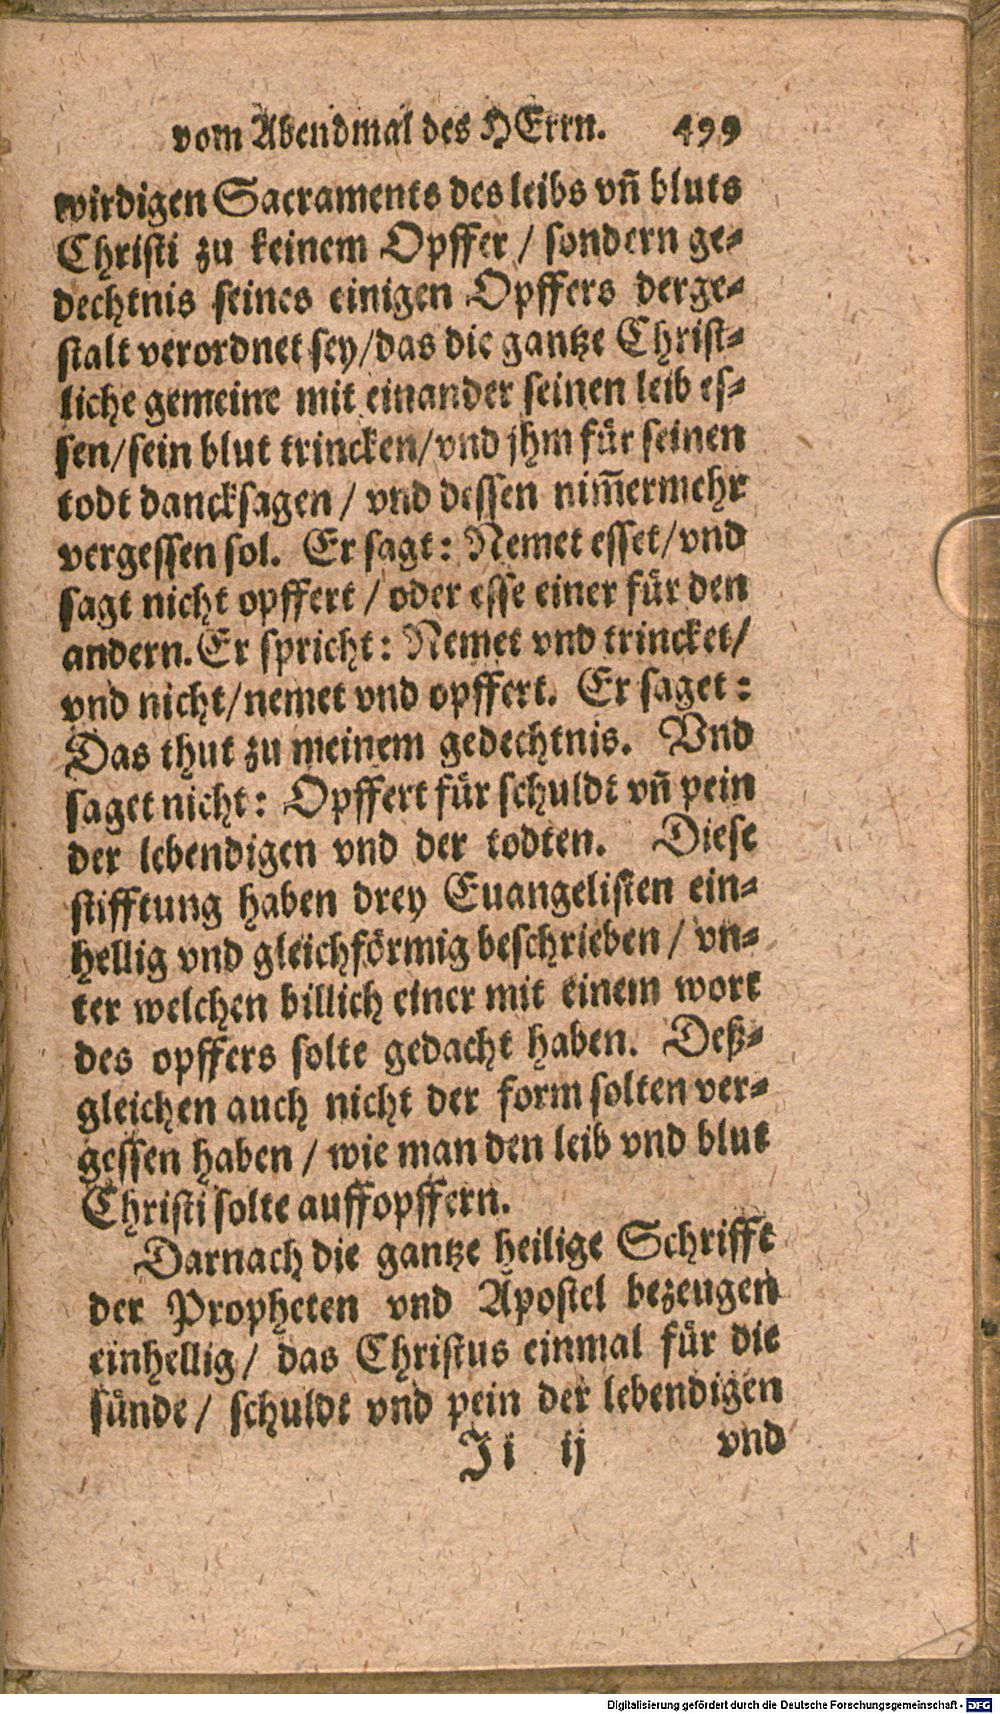 vom Abendmal des HErrn. 499
wirdigen Sacraments des leibs vñ bluts
Christi zu keinem Opffer / sondern ge-
dechtnis seines einigen Opffers derge-
stalt verordnet sey/das die gantze Christ-
liche gemeine mit einander seinen leib es-
sen/sein blut trincken/vnd jhm für seinen
todt dancksagen / vnd dessen nim̄ermehr
vergessen sol. Er sagt: Nemet esset/vnd
sagt nicht opffert / oder esse einer für den
andern. Er spricht: Nemet vnd trincket/
vnd nicht/nemet vnd opffert. Er saget:
Das thut zu meinem gedechtnis. Vnd
saget nicht: Opffert für schuldt vñ pein
der lebendigen vnd der todten. Diese
stifftung haben drey Euangelisten ein-
hellig vnd gleichförmig beschrieben / vn-
ter welchen billich einer mit einem wort
des opffers solte gedacht haben. Deß-
gleichen auch nicht der form solten ver-
gessen haben / wie man den leib vnd blut
Christi solte auffopffern.
Darnach die gantze heilige Schrifft
der Propheten vnd Apostel bezeugen
einhellig/ das Christus einmal für die
sünde/ schuldt vnd pein der lebendigen
Ii ij vnd
Digitalisierung gefördert durch die Deutsche Forschungsgemeinschaft - DFG